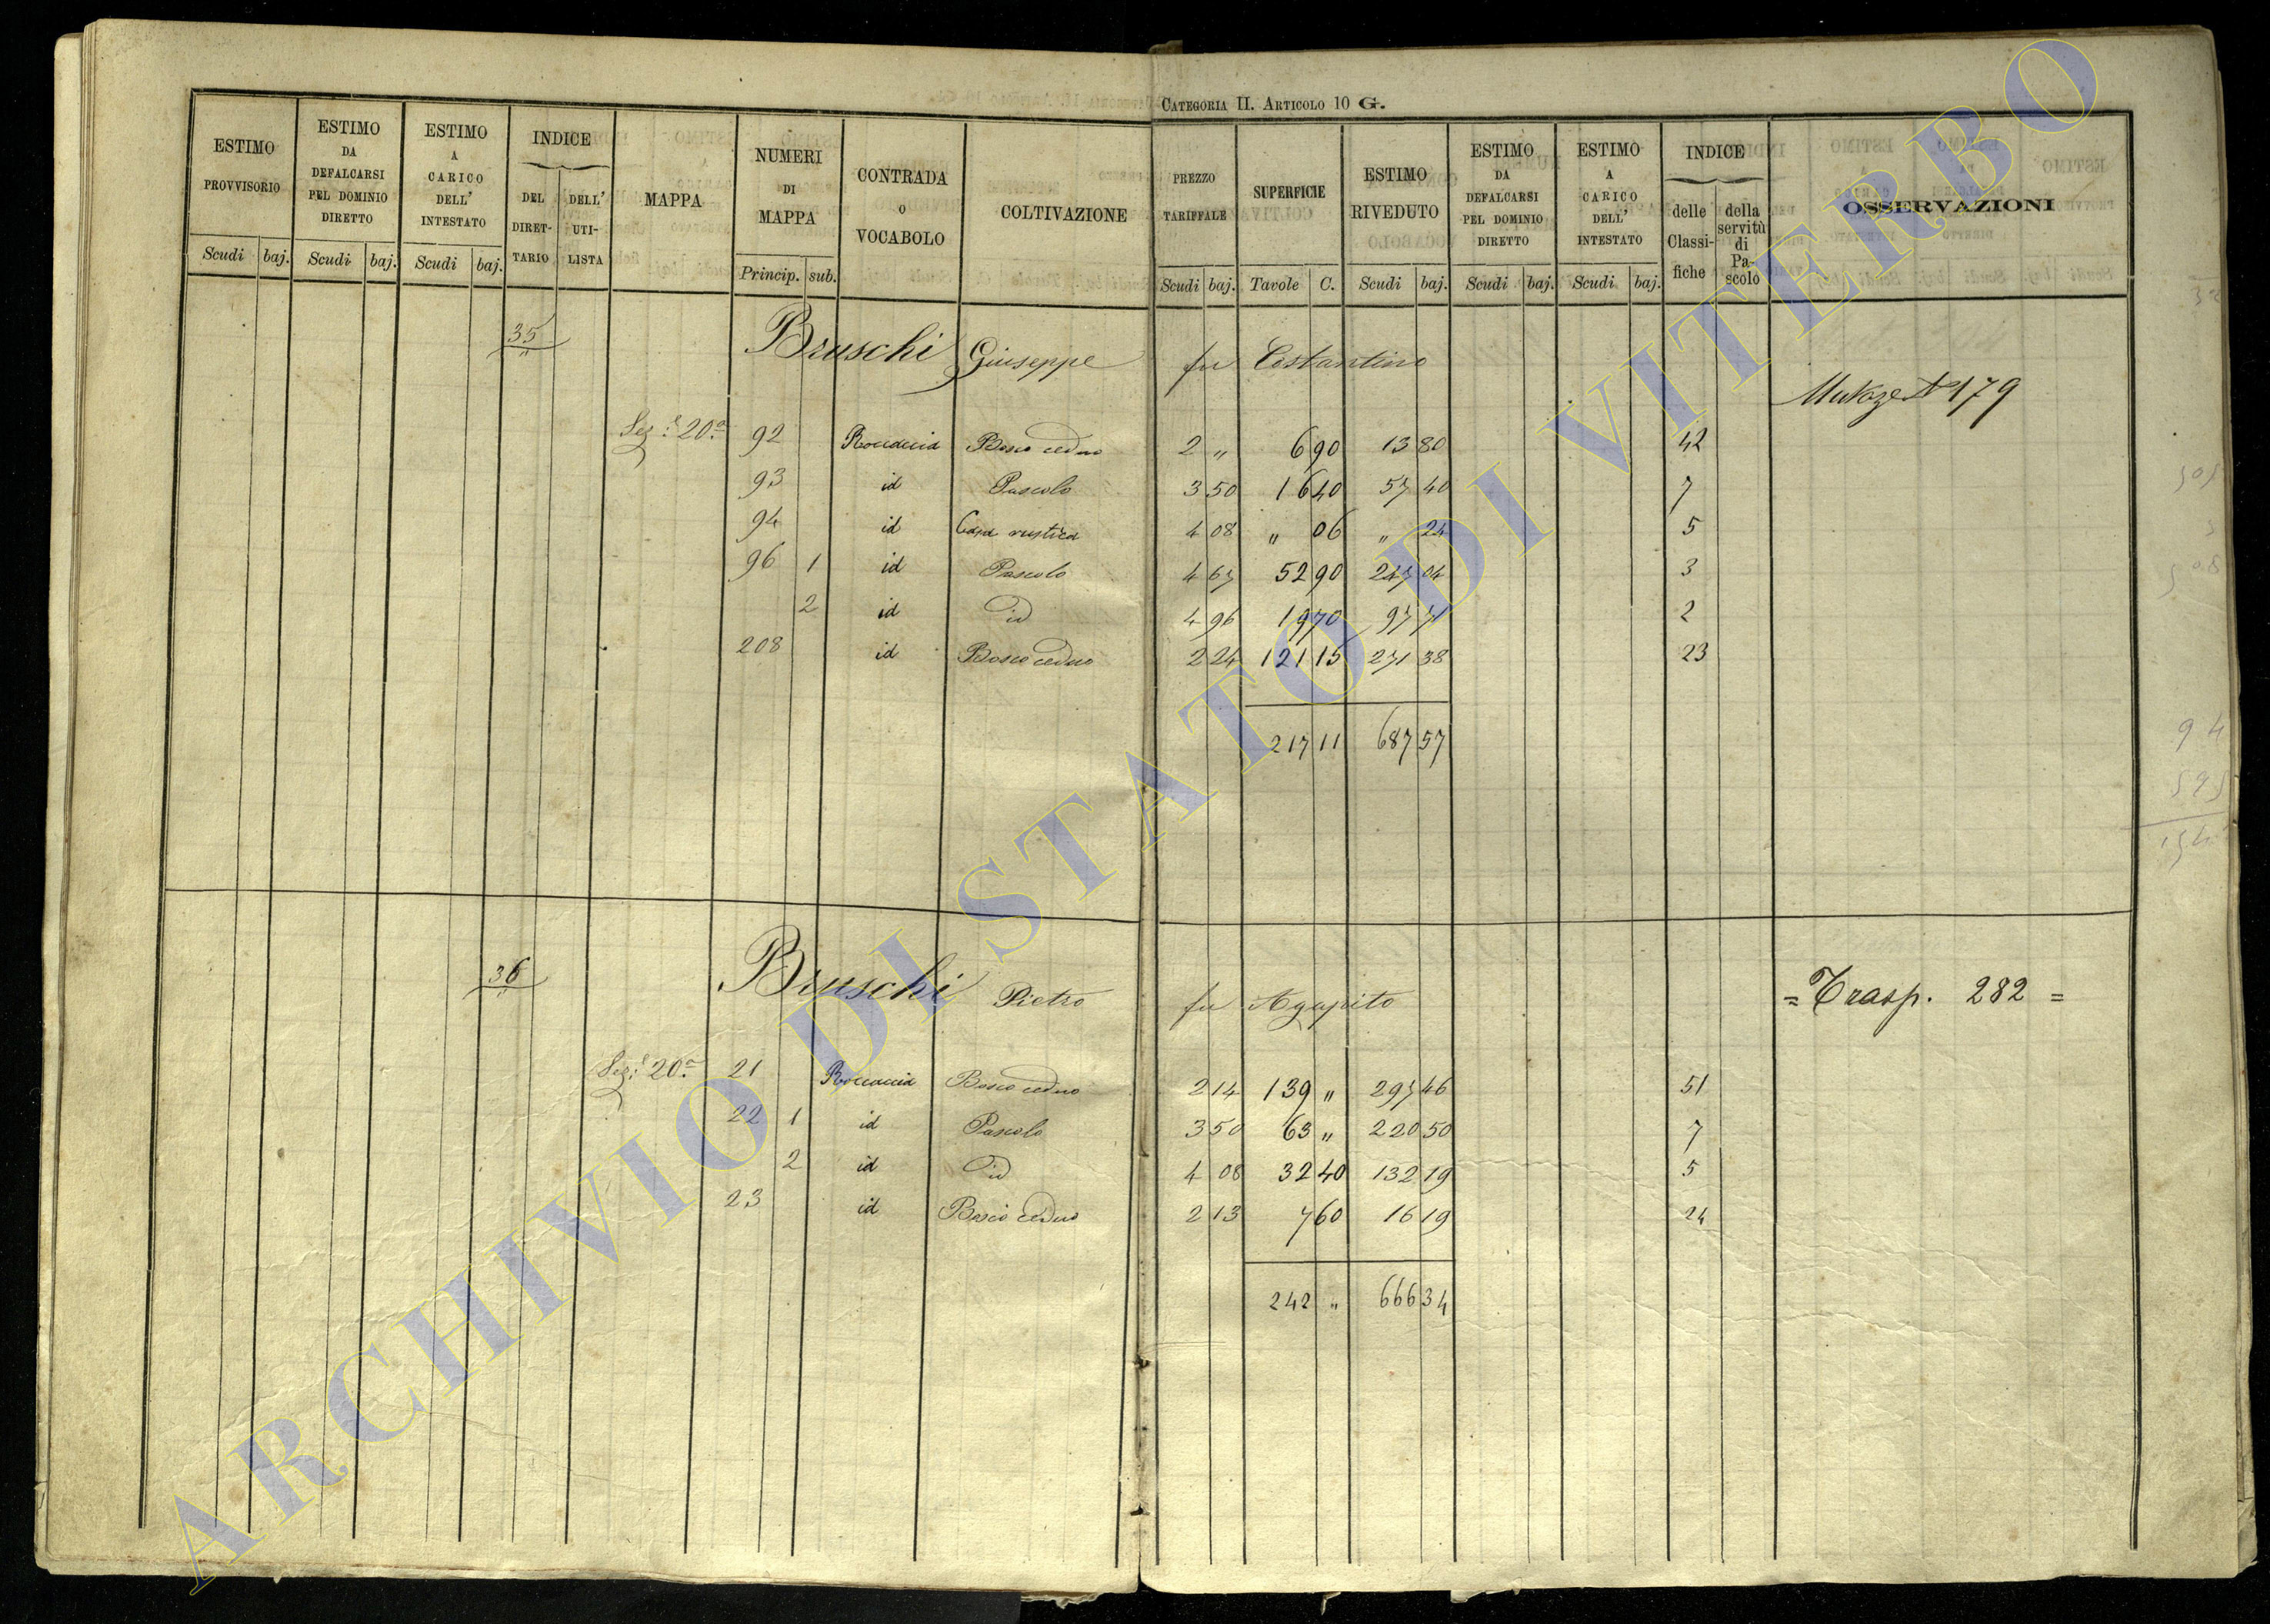 CATEGORIA II. ARTICOLO 10 G.
ESTIMO PROVVISORIO Scudi baj.
ESTIMO DA DEFALCARSI PEL DOMINIO DIRETTO Scudi baj.
ESTIMO A CARICO DELL' INTESTATO Scudi baj.
INDICE DEL DIRETTARIO DELL' UTILISTA
MAPPA
NUMERI DI MAPPA Princip. sub.
CONTRADA O VOCABOLO
COLTIVAZIONE
PREZZO TARIFFALE Scudi baj.
SUPERFICIE Tavole C.
ESTIMO RIVEDUTO Scudi baj.
ESTIMO DA DEFALCARSI PEL DOMINIO DIRETTO Scudi baj.
ESTIMO A CARICO DELL' INTESTATO Scudi baj.
INDICE delle Classifiche della servitù di Pascolo
OSSERVAZIONI
35 Bruschi Giuseppe fu Costantino
N 179
Sez.e 20.a 92 Roccaccia Bosco ceduo 2 " 6 90 13 80 42
93 id Pascolo 3 50 16 40 57 40 7
94 id Casa rustica 4 08 " 06 " 24 5
96 1 id Pascolo 4 67 52 90 247 04 3
2 id id 4 96 19 70 97 71 2
208 id Bosco ceduo 2 24 121 15 271 38 23
217 11 687 57
36 Bruschi Pietro fu Agapito = Trasp. 282 =
Sez.e 20.a 21 Roccaccia Bosco ceduo 2 14 139 " 297 46 51
22 1 id Pascolo 3 50 63 " 220 50 7
2 id id 4 08 32 40 132 19 5
23 id Bosco ceduo 2 13 7 60 16 19 24
242 " 666 34
ARCHIVIO DI STATO DI VITERBO